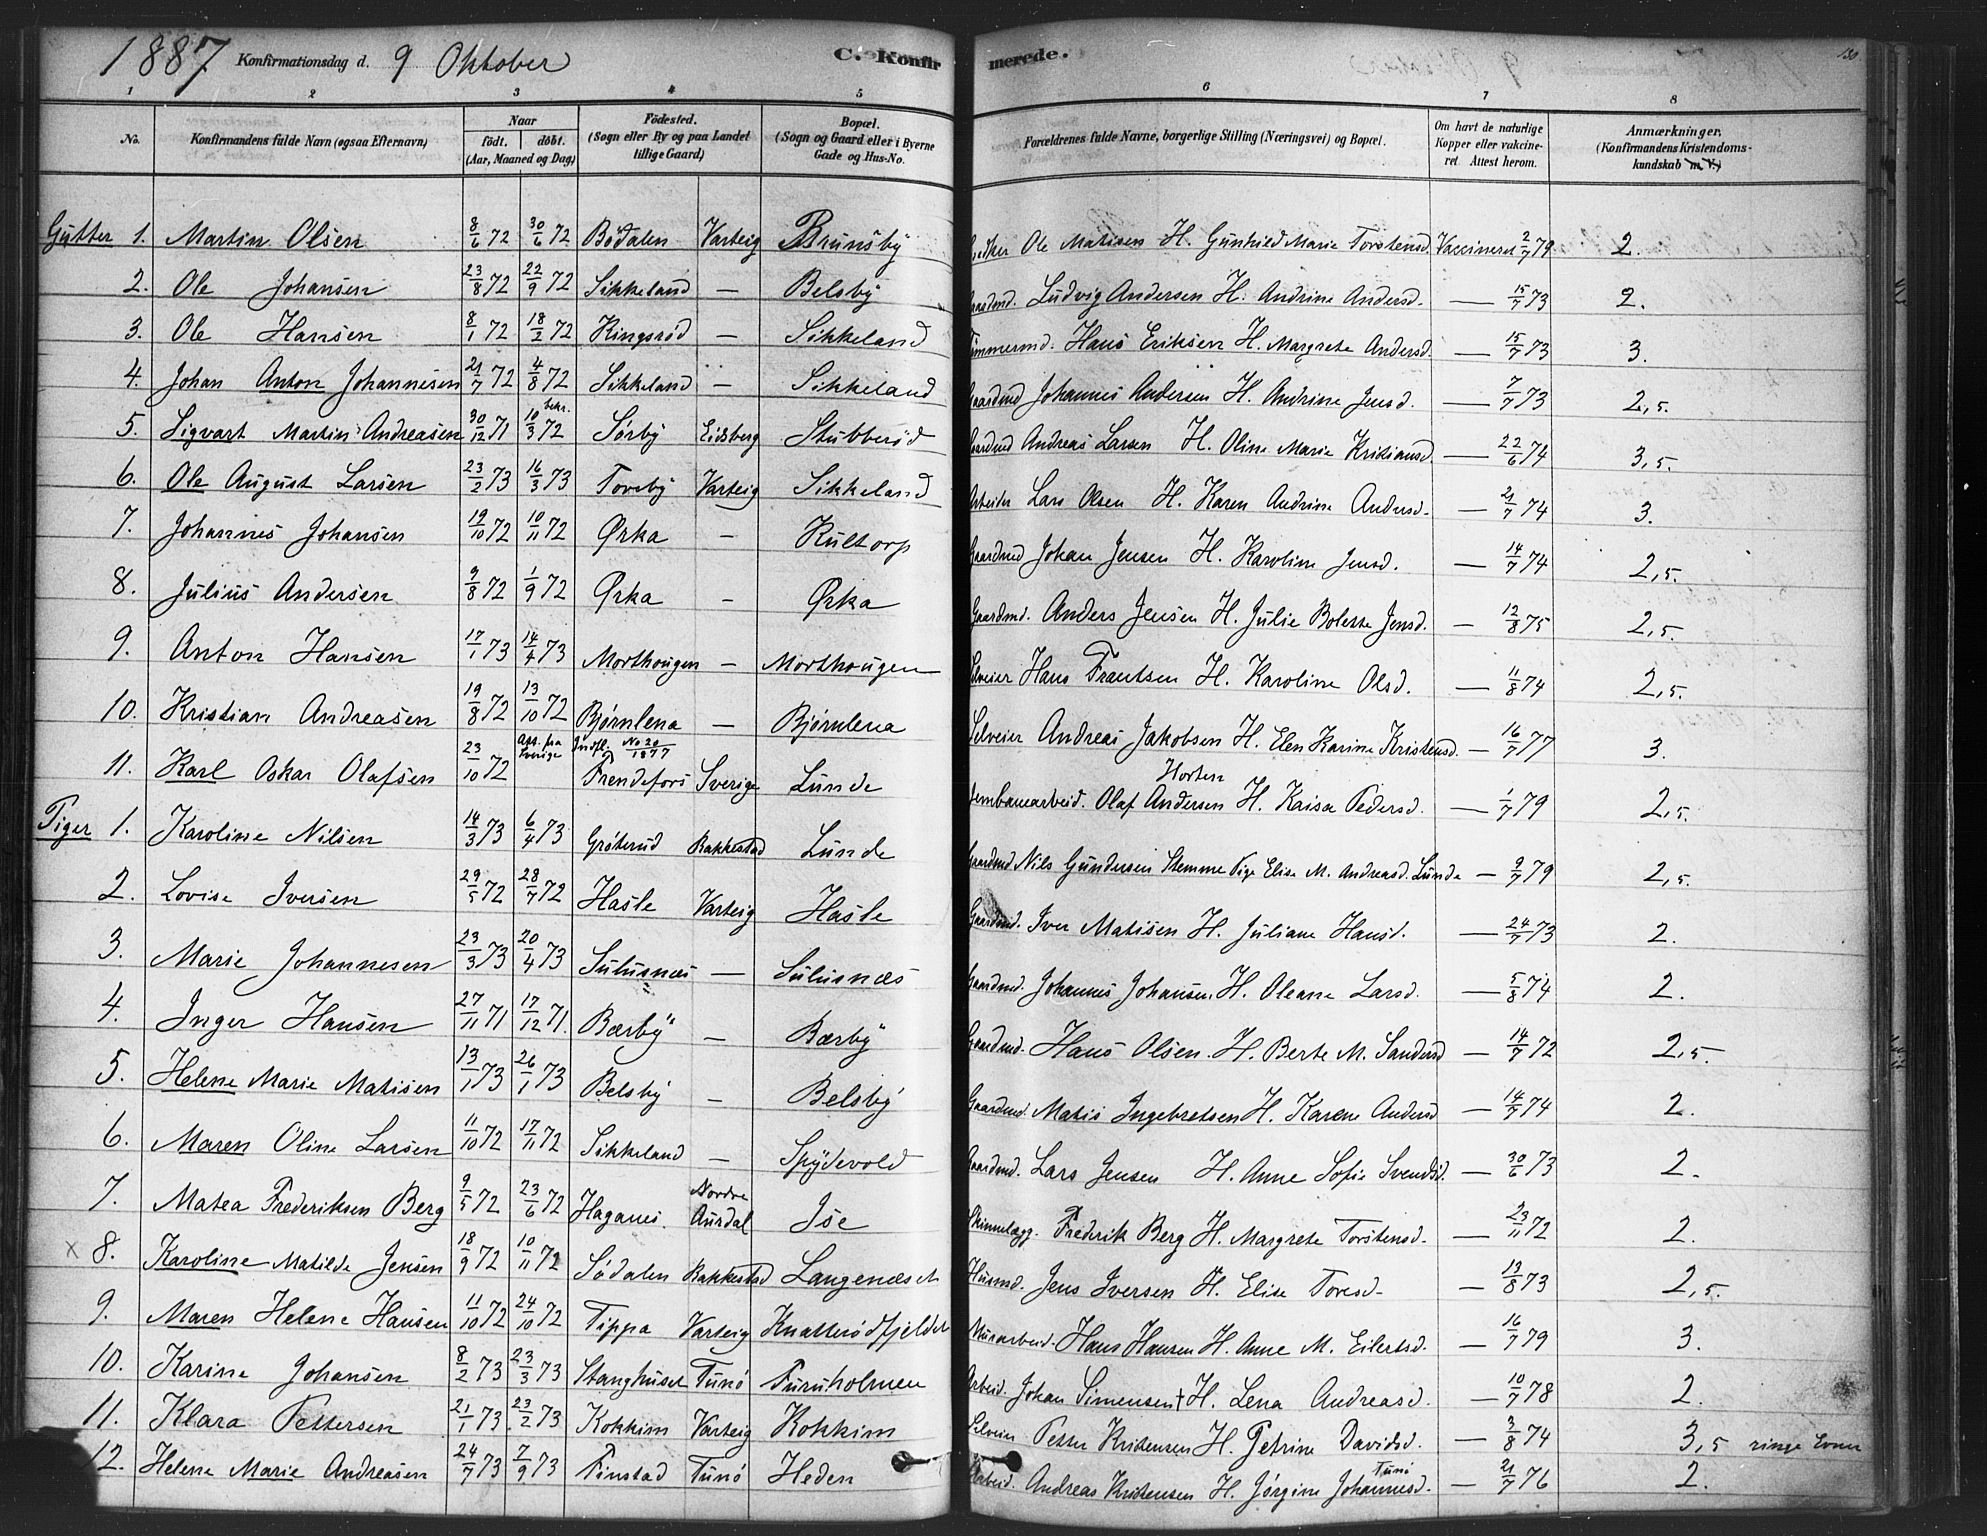 1887 Konfirmationsdag d. 9 Oktober C. Konfir merede. 130
1 2 3 4 5 6 7 8
No. Konfirmandens fulde Navn (ogsaa Efternavn) Naar födt. döbt. (Aar, Maaned og Dag) Födested. (Sogn eller By og paa Landet tillige Gaard) Bopæl. (Sogn og Gaard eller i Byerne Gade og Hus-No. Forældrenes fulde Navne, borgerlige Stilling (Næringsvei) og Bopæl. Om havt de naturlige Kopper eller vakcineret. Attest herom. Anmærkninger. (Konfirmandens Kristendomskundskab m. V.)
Gutter 1. Martin Olsen 8/6 72 30/6 72 Bødalen Varteig Brunsby Ole Matisen H. Gunhild Marie Torstensd. Vaccineret 2/7 79 2.
2. Ole Johansen 23/8 72 22/9 72 Sikkeland — Belsby Gaardmd. Ludvig Andersen H. Andrine Andersd. — 15/7 73 2.
3. Ole Hansen 8/1 72 18/2 72 Kingsrød — Sikkeland Tømmermd. Hans Eriksen H. Margrete Andersd. — 15/7 73 3.
4. Johan Anton Johannesen 21/7 72 4/8 72 Sikkeland — Sikkeland Gaardmd Johannes Andersen H. Andrine Jensd. — 7/7 73 2,5.
5. Sigvart Martin Andreasen 30/12 71 bekr. 10/3 72 Sørby Eidsberg Stubberød Gaardmd Andreas Larsen H. Oline Marie Kristiansd. — 22/6 74 3,5.
6. Ole August Larsen 23/2 73 16/3 73 Toveby Varteig Sikkeland Arbeider Lars Olsen H. Karen Andrine Andersd. — 21/7 74 3.
7. Johannes Johansen 19/10 72 10/11 72 Ørka — Kultorp Gaardmd Johan Jensen H. Karoline Jensd. — 14/7 74 2,5.
8. Julius Andersen 9/8 72 1/9 72 Ørka — Ørka Gaardmd. Anders Jensen H. Julie Bolette Jensd. — 12/8 75 2,5.
9. Anton Hansen 17/1 73 14/4 73 Morthougen — Morthougen Selveier Hans Frantsen H. Karoline Olsd. — 11/8 74 2,5.
10. Kristian Andreasen 19/8 72 13/10 72 Bjørnlena — Bjørnlena Selveier Andreas Jakobsen H. Elen Karine Kristensd. — 16/7 77 3.
11. Karl Oskar Olafsen 23/10 72 Att. fra Sverige Indfl. No 20/1877 Frendefors Sverige Lunde Jernbanearbeid. Olaf Andersen Horten H. Kaisa Pedersd. — 1/7 79 2,5.
Piger 1. Karoline Nilsen 14/3 73 6/4 73 Grøterud Rakkestad Lunde Gaardmd Nils Gundersen Stemme Pige Elise M. Andreasd. Lunde — 9/7 79 2,5.
2. Lovise Iversen 29/5 72 28/7 72 Hasle Varteig Hasle Gaardmd. Iver Matisen H. Juliane Hansd. — 24/7 73 2.
3. Marie Johannesen 23/3 73 20/4 73 Sulusnæs — Sulusnæs Gaardmd. Johannes Johansen. H. Oleane Larsd. — 5/8 74 2.
4. Inger Hansen 27/11 71 17/12 71. Bærby — Bærby Gaardmd. Hans Olsen. H. Berte M. Sandersd — 14/7 72 2,5.
5. Helene Marie Matisen 13/1 73 26/1 73 Belsby — Belsby Gaardmd. Matis Ingebretsen H. Karene Andersd — 14/7 74 2.
6. Maren Oline Larsen 11/10 72 17/11 72 Sikkeland — Spydevold Gaardmd. Lars Jensen H. Anne Sofie Svendsd. — 30/6 73 2.
7. Matea Frederiksen Berg 9/5 72 23/6 72 Haganes. Nordre Aurdal Ise Skinnlægg. Fredrik Berg H. Margrete Torstensd. — 23/11 72 2.
x 8. Karoline Matilde Jensen 18/9 72 10/11 72 Sødalen Rakkestad Langenæset Husmd. Jens Iversen H. Elise Toresd — 13/8 73 2,5.
9. Maren Helene Hansen 11/10 72 24/10 72 Tippa Varteig Knatterødfjeldet Murarbeid. Hans Hansen H. Anne M. Eilertsd. — 16/7 79 3.
10. Karine Johansen 8/2 73 23/3 73 Stanghuset Tunø Furuholmen Arbeid. Johan Simensen † H. Lena Andreasd. — 10/7 78 2.
11. Klara Pettersen 21/1 73 23/2 73 Kokkim Varteig Kokkim Selveier Petter Kristensen H. Petrine Davidsd. — 3/8 74 3,5 ringe Evner
12. Helene Marie Andreasen 24/7 73 7/9 73 Finstad Tunø Heden Arbeid. Andreas Kristensen H. Jørgine Johannesd. Tunø — 21/7 76 2.